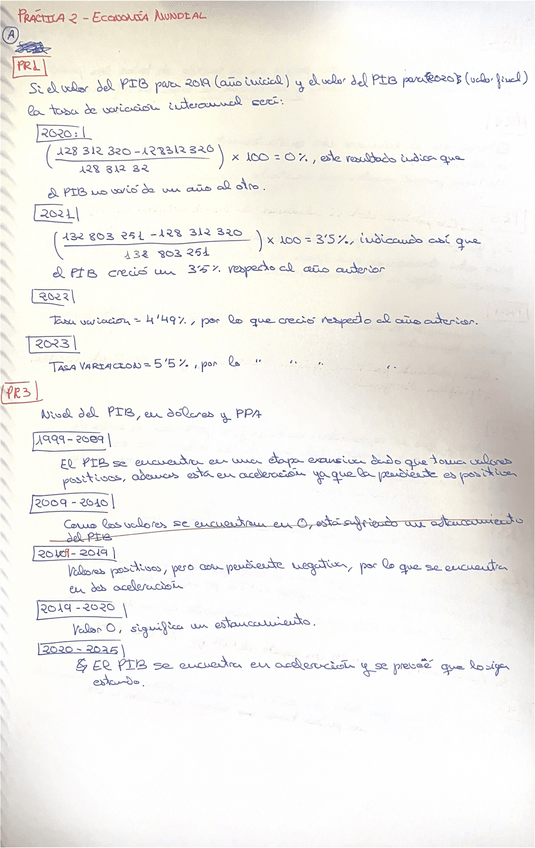 PRÁCTICA 2 - ECONOMÍA MUNDIAL
A
PR1
Si el valor del PIB para 2019 (año inicial) y el valor del PIB para 2020 (valor final)
la tasa de variación interanual será:
2020:
(128 312 320 - 128312 320 / 128 312 32) x 100 = 0%, este resultado indica que
el PIB no varió de un año al otro.
2021
(132 803 251 - 128 312 320 / 132 803 251) x 100 = 3'5%, indicando así que
el PIB creció un 3'5% respecto al año anterior
2022
Tasa variación = 4'49%, por lo que creció respecto al año anterior.
2023
TASA VARIACION = 5'5%, por lo " " " "
PR3
Nivel del PIB, en dólares y PPA
1999-2009
El PIB se encuentra en una etapa expansiva dado que toma valores
positivos, además está en aceleración ya que la pendiente es positiva
2009-2010
Como los valores se encuentran en 0, está sufriendo un estancamiento
del PIB
2010-2019
Valores positivos, pero con pendiente negativa, por lo que se encuentra
en des aceleración
2019-2020
Valor 0, significa un estancamiento.
2020-2025
El PIB se encuentra en aceleración y se preveé que lo siga
estando.